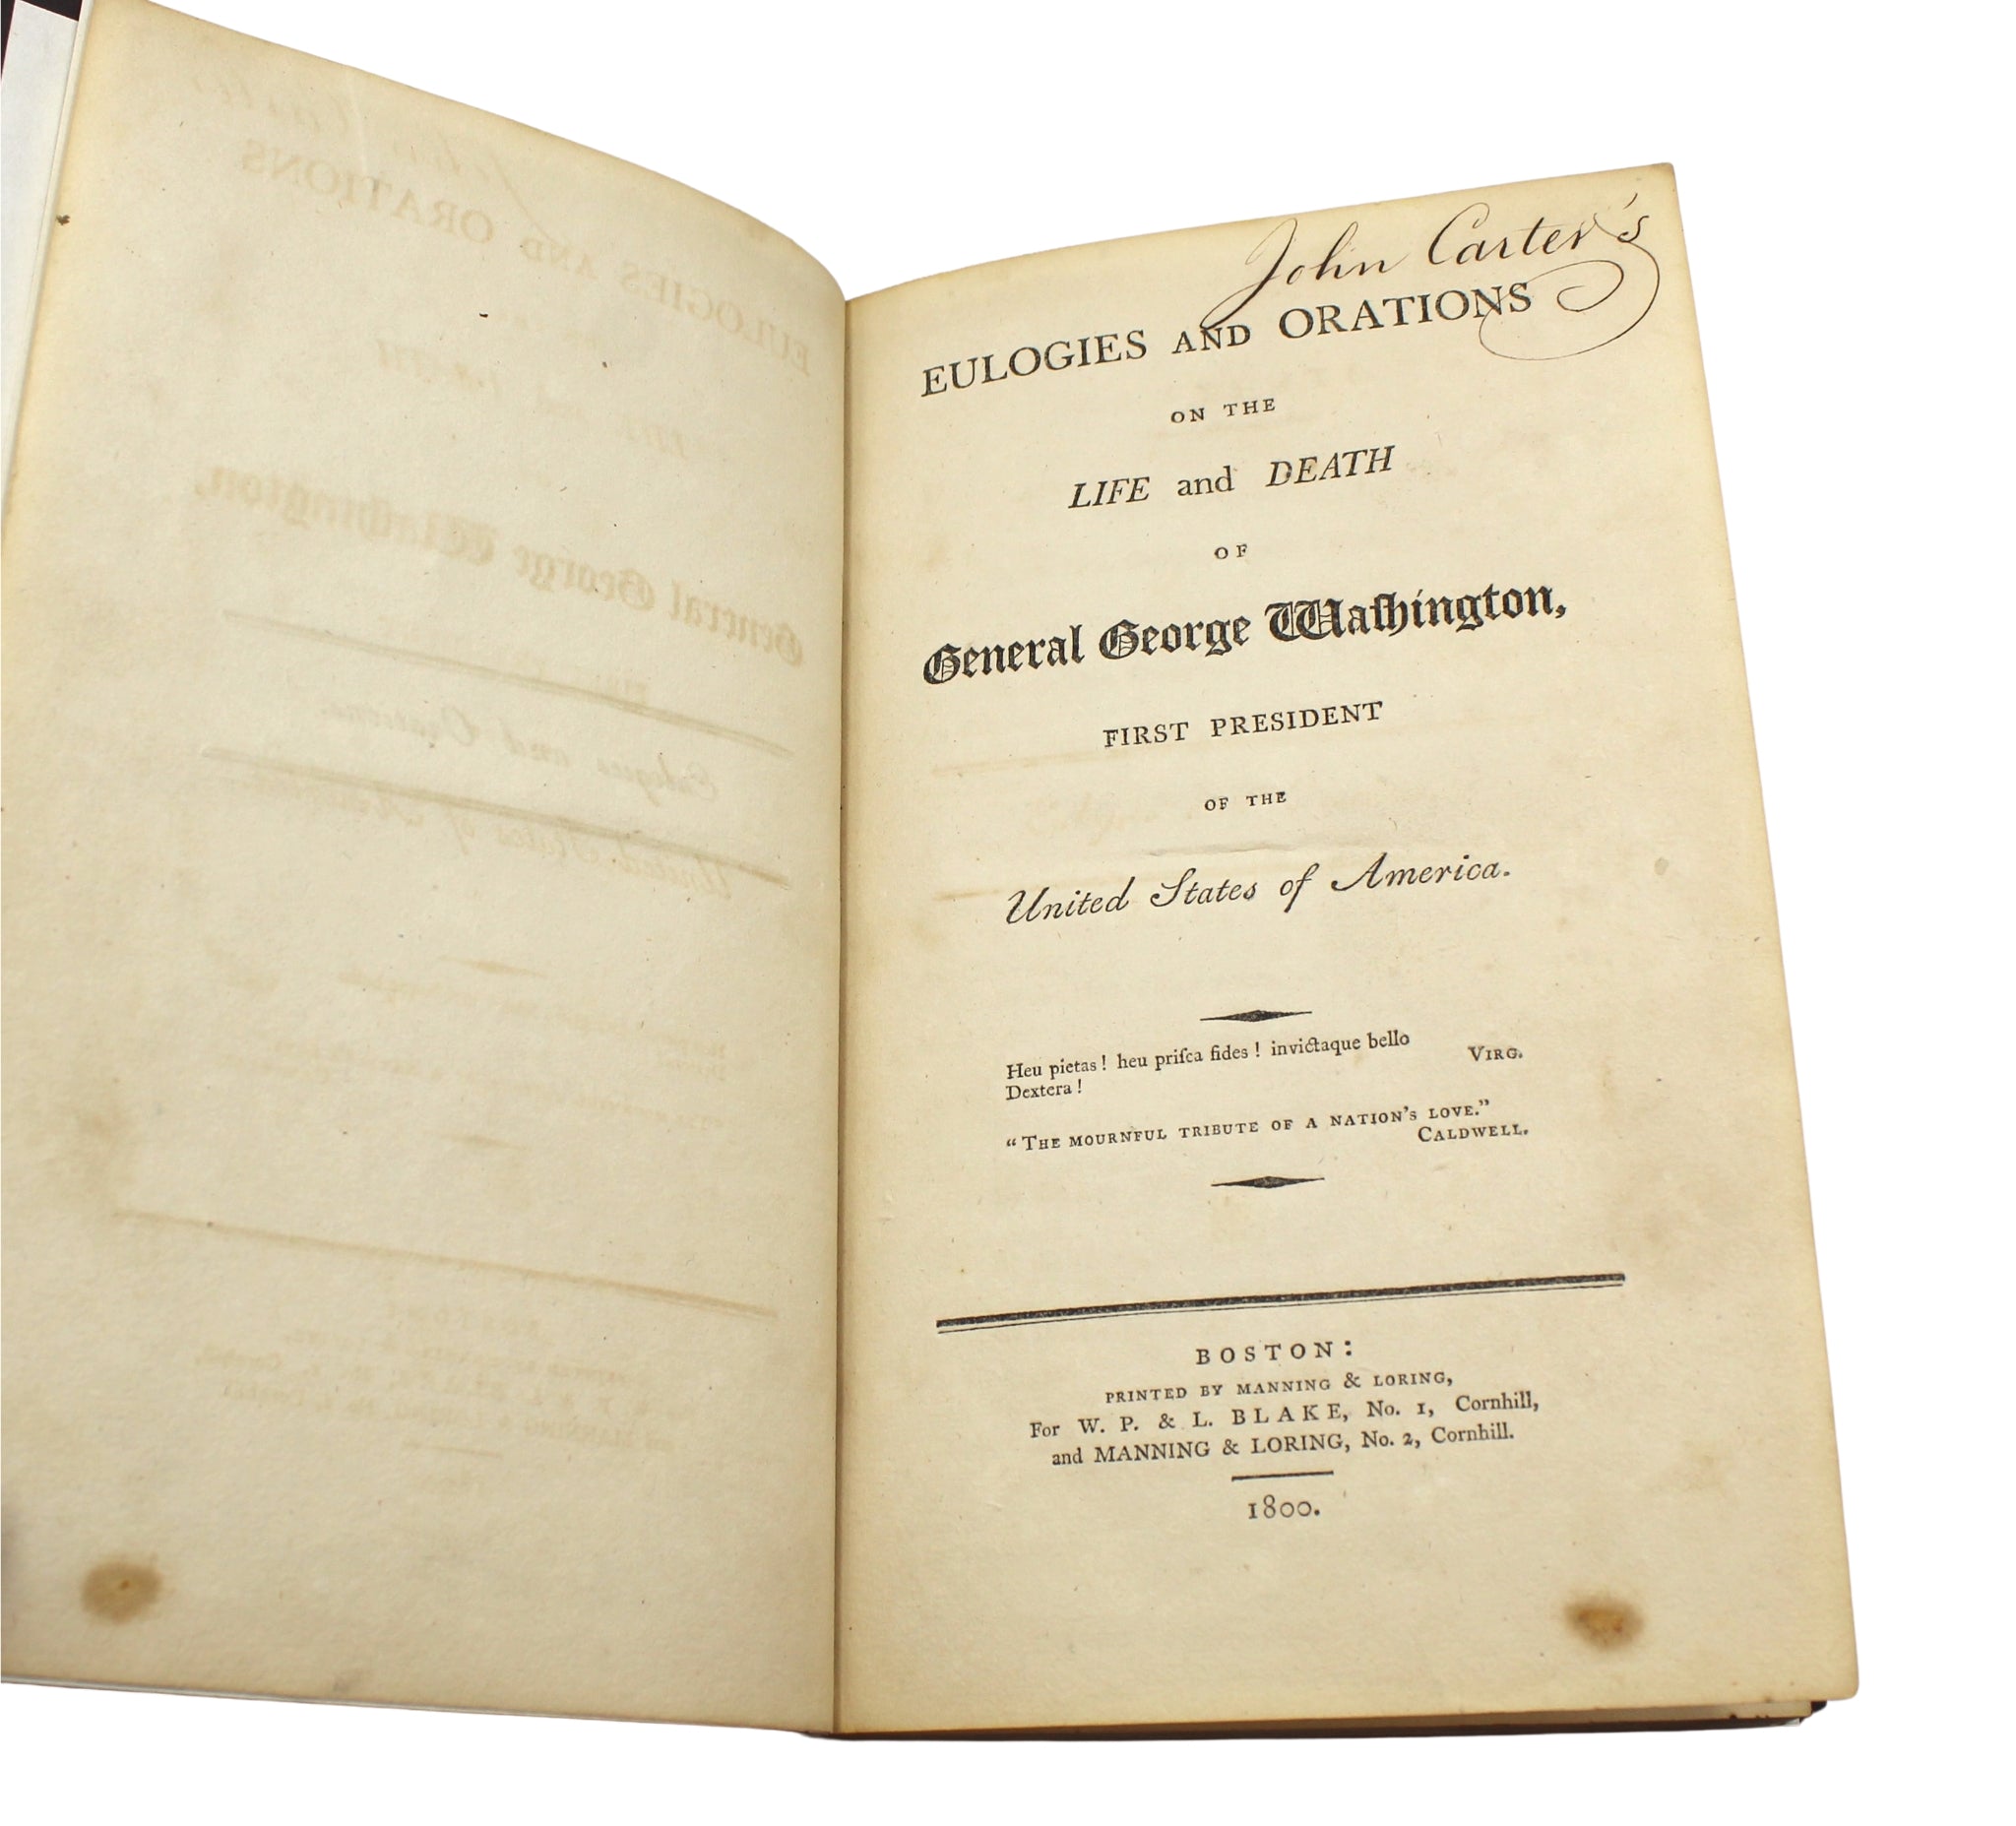 John Carter's
EULOGIES AND ORATIONS
ON THE
LIFE and DEATH
OF
General George Waſhington,
FIRST PRESIDENT
OF THE
United States of America.
Heu pietas ! heu priſca fides ! invictaque bello
Dextera !
VIRG.
“THE MOURNFUL TRIBUTE OF A NATION'S LOVE.”
CALDWELL.
BOSTON :
PRINTED BY MANNING & LORING,
For W. P. & L. BLAKE, No. 1, Cornhill,
and MANNING & LORING, No. 2, Cornhill.
1800.